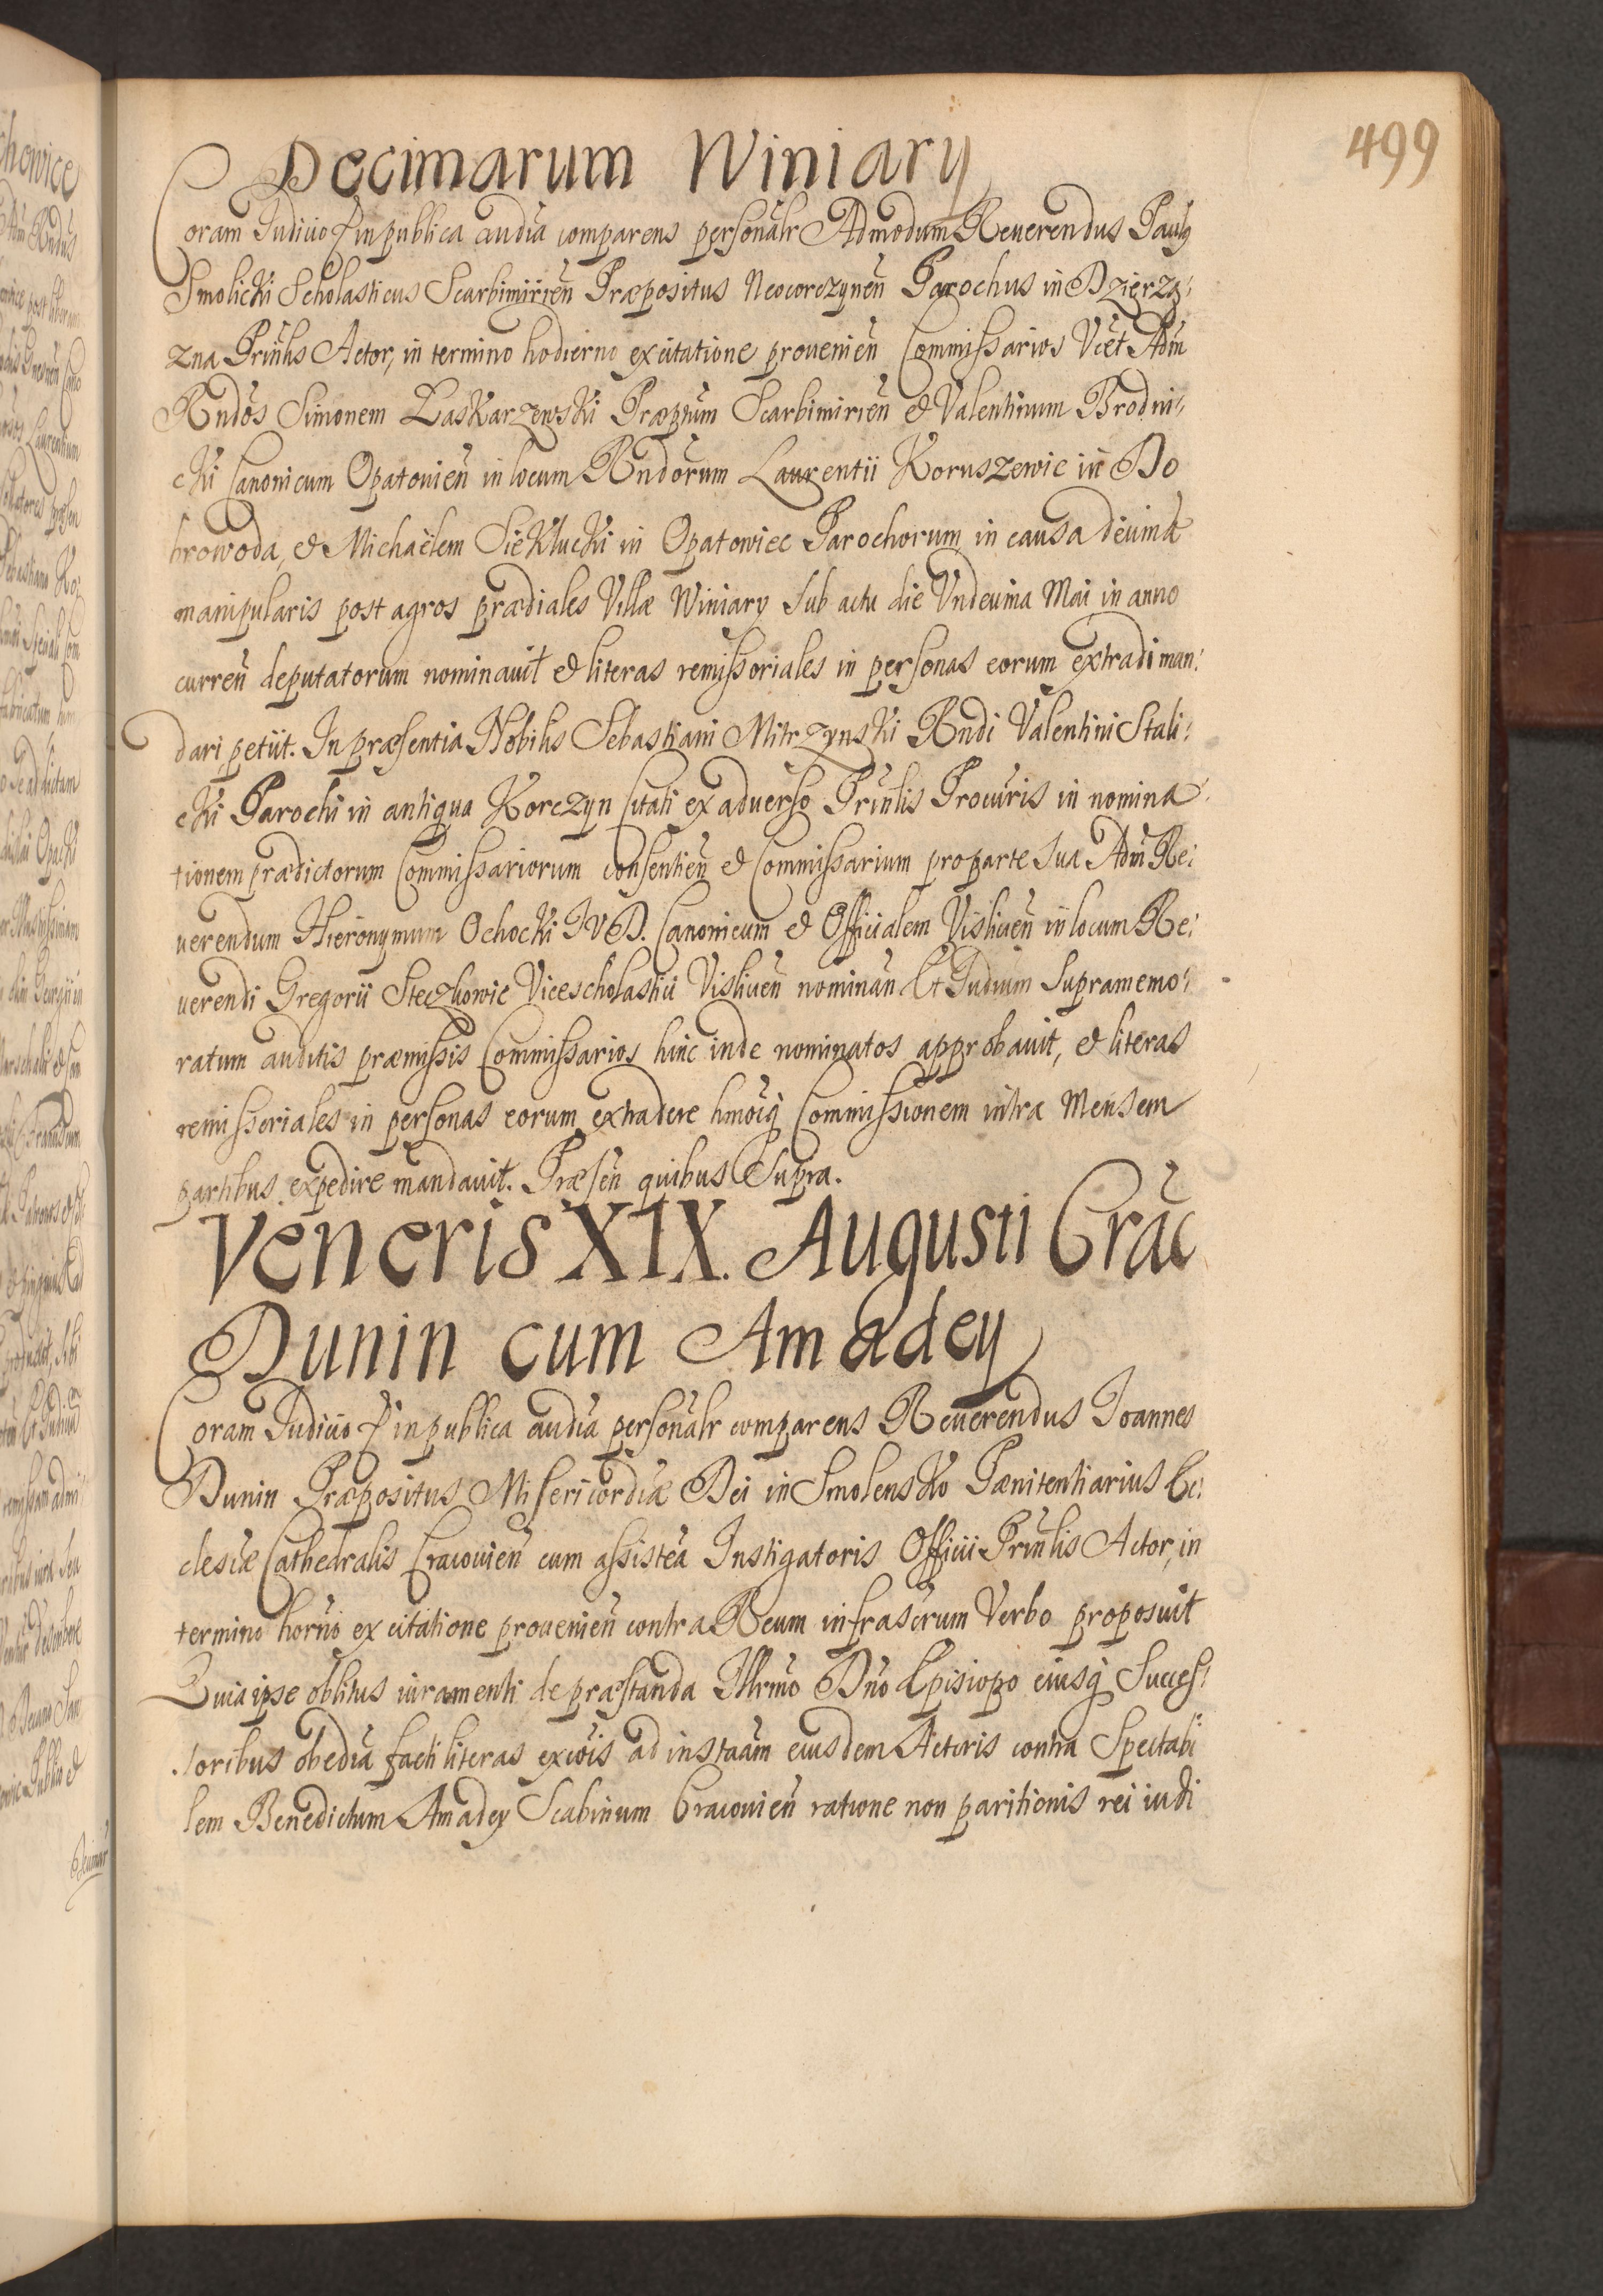 499
Decimarum Winiary
Coram Iudicio P in publica audia comparens personalr Admodum Reuerendus Paulꝯ
Smolicki Scholasticus Scarbimirien̄ Præpositus Neocorczynen̄ Parochus in Dzierzą:
zna Prinlis Actor, in termino hodierno ex citatione prouenien̄ Commissarios Vt̄ Adm̄
Rndos Simonem Laskarzewski Præptum Scarbimirien̄ & Valentinum Brodni:
cki Canonicum Opatouien̄ in locum Rndorum Laurentii Koruszewic in Do
browoda, & Michaëlem Siekłucki in Opatowiec Parochorum in causa decimæ
manipularis post agros prædiales Villæ Winiary sub actu die Vndecima Mai in anno
curren̄ deputatorum nominauit & literas remissoriales in personas eorum extradi man:
dari petiit. In præsentia Nobilis Sebastiani Mitrzynski Rndi Valentini Stali:
cki Parochi in antiqua Korczyn Citati ex aduerso Prinlis Procuris in nomina
tionem prædictorum Commissariorum consentien̄ & Commissarium pro parte sua Adm̄ Re:
uerendum Hieronymum Ochocki IVD. Canonicum & Officialem Vislicen̄ in locum Re:
uerendi Gregorii Steczkowic Vicescholastici Vislicen̄ nominan̄ Et Iudicium supramemo:
ratum auditis præmissis Commissarios hinc inde nominatos approbauit, & literas
remissoriales in personas eorum extradere hmoiq̨ Commissionem intra Mensem
partibus expedire mandauit. Præsen̄ quibus supra.
Veneris XIX. Augusti Crac
Dunin cum Amadey
Coram Iudicio P in publica audia personalr comparens Reuerendus Ioannes
Dunin Præpositus Misericordiæ Dei in Smolensko Pænitentiarius Ec:
clesiæ Cathedralis Cracouien̄ cum assistēa Instigatoris Officii Prinlis Actor, in
termino horno ex citatione prouenien̄ contra Reum infrascrum Verbo proposuit
Quia ipse oblitus iuramenti de præstanda Illrmo Dno Episcopo eiusq̨ Succes:
soribus obedia facti literas excōis ad instaam eiusdem Actoris contra Spectabi
lem Benedictum Amadey Scabinum Cracouien̄ ratione non paritionis rei iudi